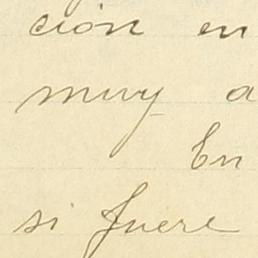 ción en
muy a
En
si fuere